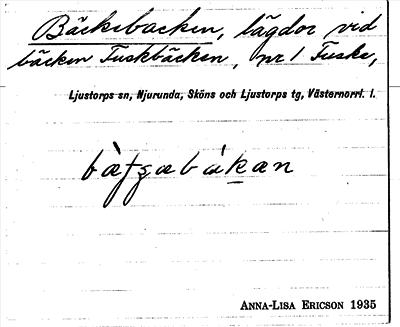 Bäcksbacken, lägdor vid
bäcken Fuskbäcken, nr 1 Fuske,
Ljustorps sn, Njurunda, Sköns och Ljustorps tg, Västernorrl. l.
ANNA-LISA ERICSON 1935